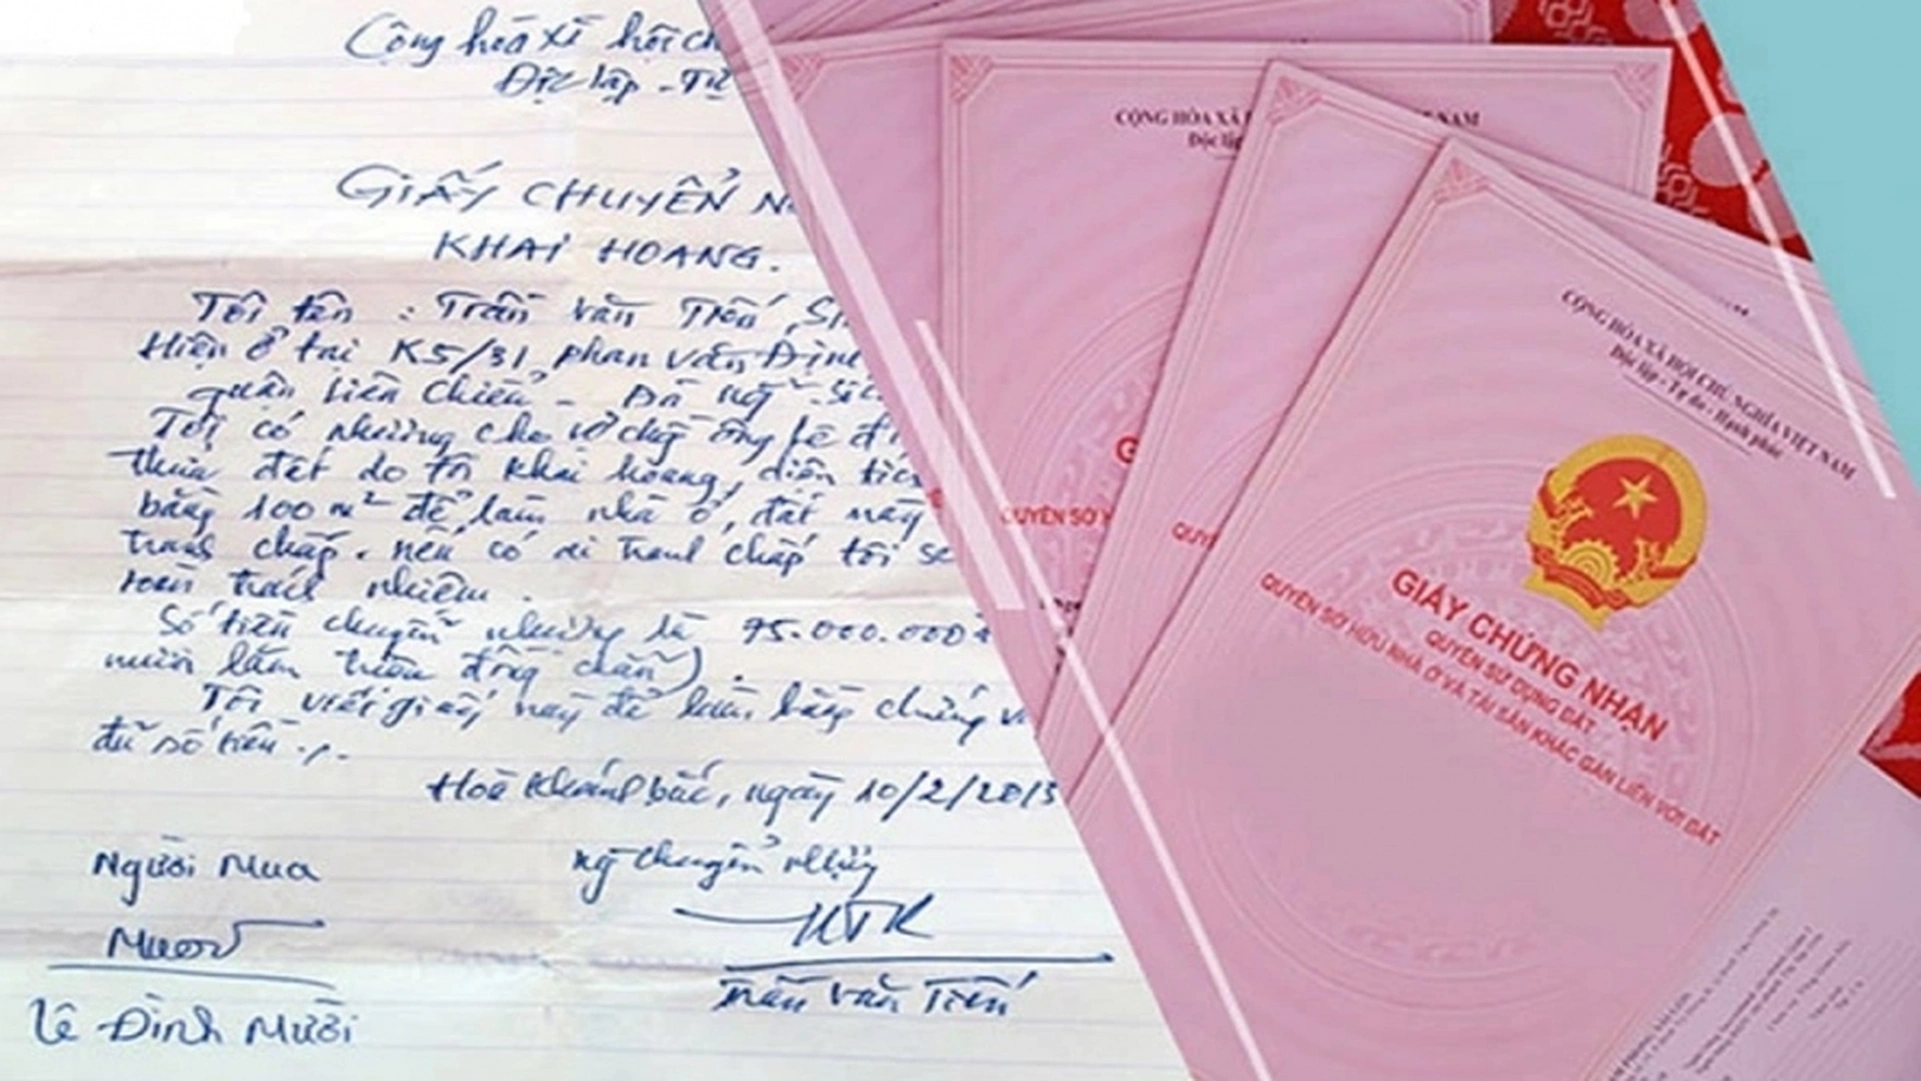 Cộng hòa xã hội ch
Độc lập - Tự
GIẤY CHUYỂN N
KHAI HOANG.
Tôi tên : Trần Văn Tiến, Si
Hiện ở tại K5/31 phan Văn Định
quận Liên Chiểu - Đà Nẵng
Tôi có nhường cho vợ chồng ông Lê Đì
thửa đất do tôi khai hoang, diện tích
bằng 100m² để làm nhà ở, đất này
tranh chấp. nếu có ai tranh chấp tôi sẽ
toàn trách nhiệm.
Số tiền chuyển nhường là 95.000.000đ
mươi lăm triệu đồng chẵn).
Tôi viết giấy này để làm bằng chứng v
đủ số tiền
Hoà Khánh bắc, ngày 10/2/2013
Người Mua
ng chuyển nhượng
Mười
Trần Văn Tiến
Lê Đình Mười
CỘNG HÒA XÃ
Độc lập
T NAM
G
QUYỀN SỞ H
QUYỀ
CỘNG HÒA XÃ HỘI CHỦ NGHĨA VIỆT NAM
Độc lập - Tự do - Hạnh phúc
GIẤY CHỨNG NHẬN
QUYỀN SỬ DỤNG ĐẤT
QUYỀN SỞ HỮU NHÀ Ở VÀ TÀI SẢN KHÁC GẮN LIỀN VỚI ĐẤT